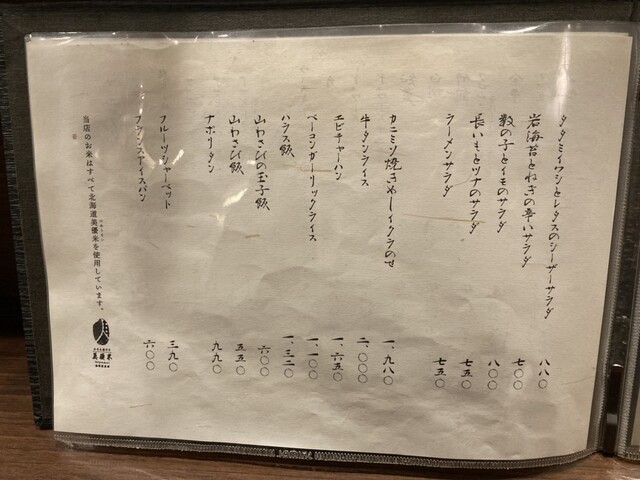 タタミイワシとレタスのシーザーサラダ 八八〇
岩海苔とねぎの辛いサラダ 七〇〇
数の子とイモのサラダ 八〇〇
長いもとツナのサラダ 七五〇
ラーメンサラダ 七五〇
カニミソ焼きめしイクラのせ 一、九八〇
牛タンライス 二、〇〇〇
エビチャーハン 一、六五〇
ベーコンガーリックライス 一、一〇〇
ハラス飯 一、三二〇
山わさびの玉子飯 六〇〇
山わさび飯 五五〇
ナポリタン 九九〇
フルーツシャーベット 三九〇
フランスアイスパン 六〇〇
当店のお米はすべて北海道美優米を使用しています。
美優米